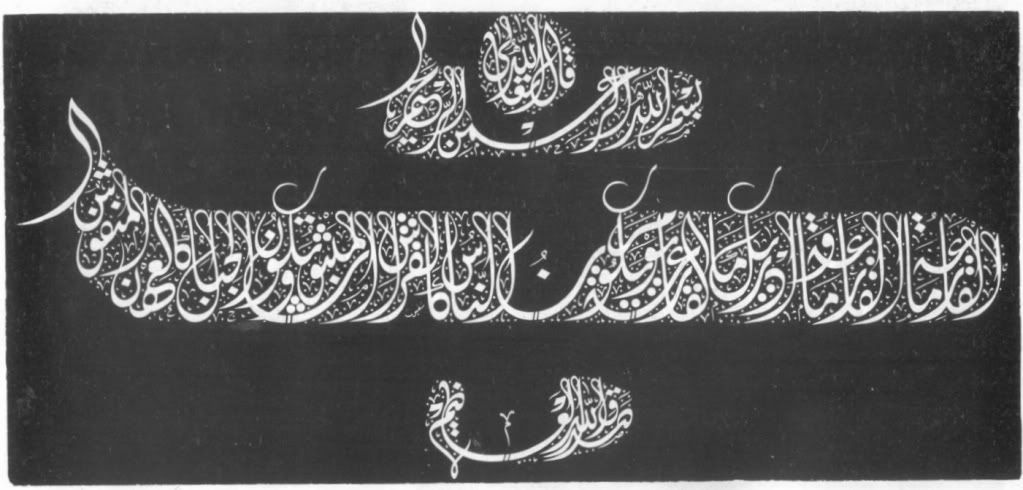 قال الله تعالى
بسم الله الرحمن الرحيم
القارعة ما القارعة وما أدريك ما القارعة يوم يكون الناس كالفراش المبثوث وتكون الجبال كالعهن المنفوش
صدق الله العظيم